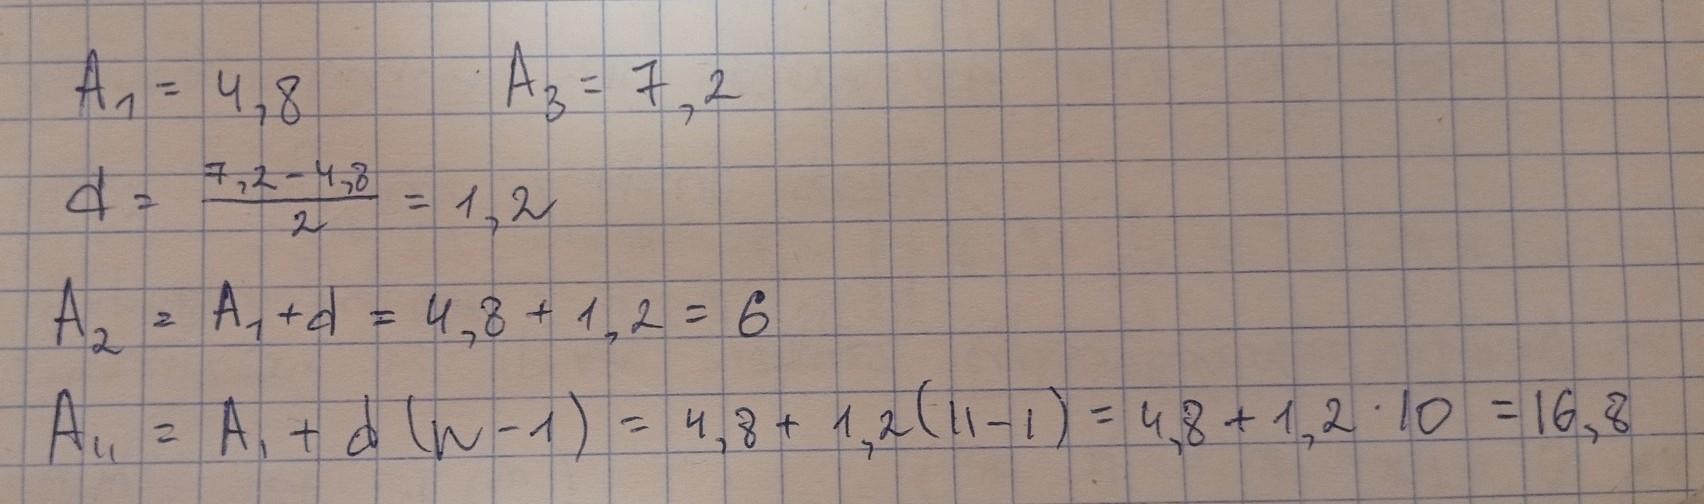 A₁ = 4,8 A₃ = 7,2
d = (7,2 - 4,8)/2 = 1,2
A₂ = A₁ + d = 4,8 + 1,2 = 6
A₁₁ = A₁ + d (n - 1) = 4,8 + 1,2 (11 - 1) = 4,8 + 1,2 · 10 = 16,8